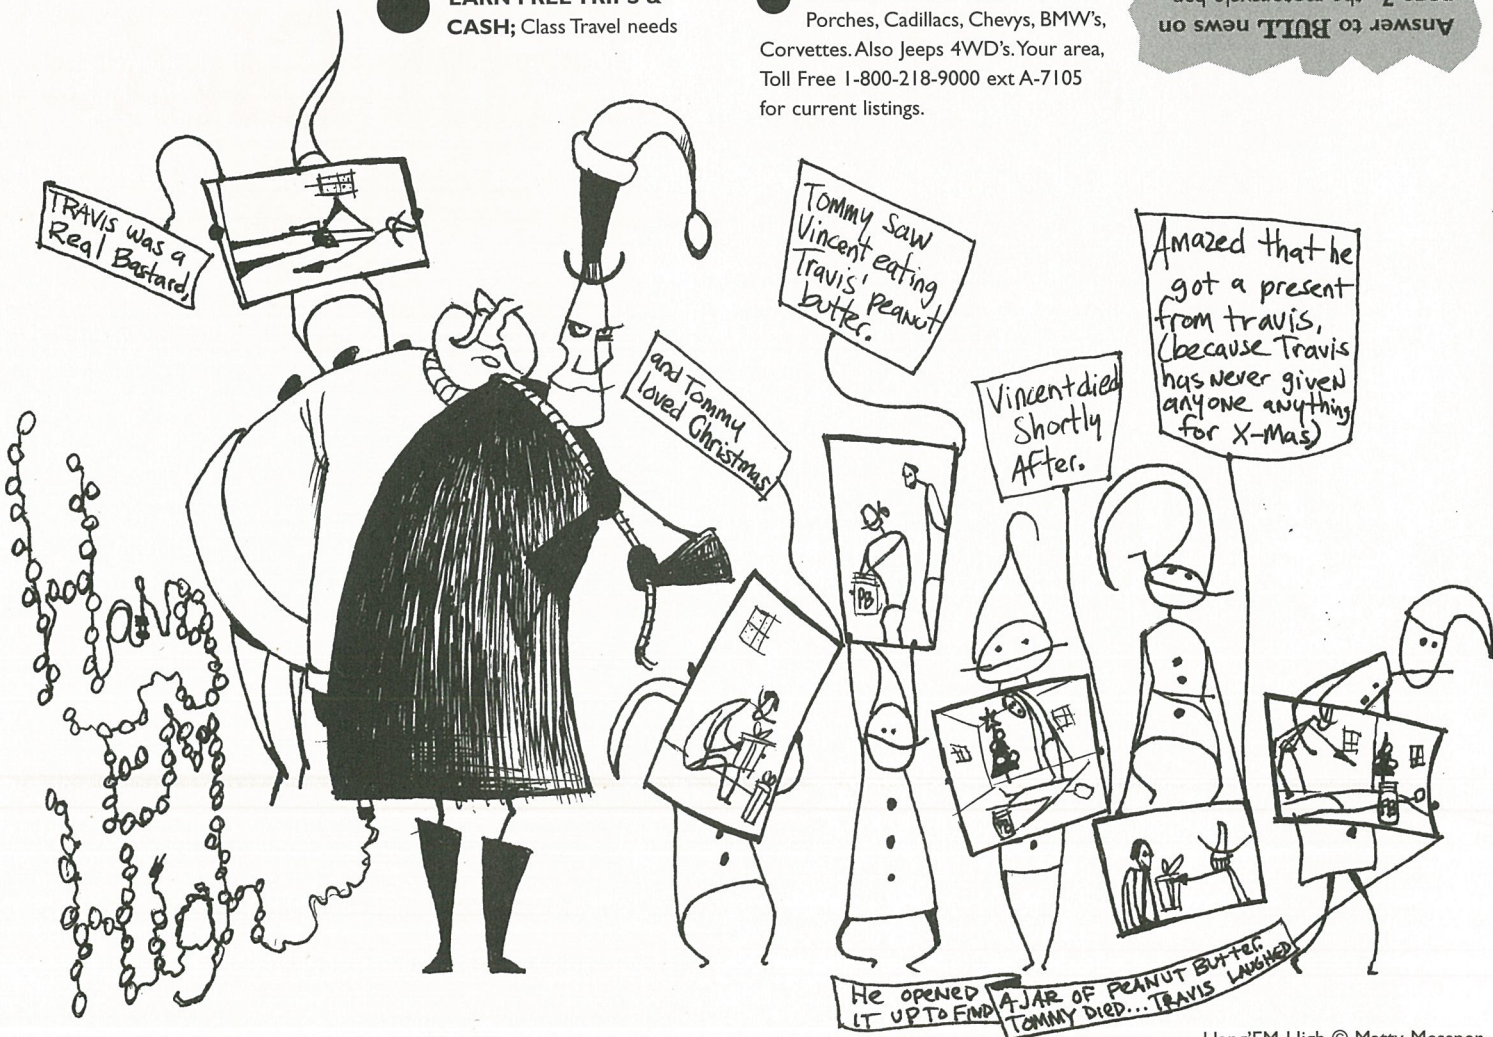 EARN FREE TRIPS &
CASH; Class Travel needs
Porches, Cadillacs, Chevys, BMW's,
Corvettes. Also Jeeps 4WD's. Your area,
Toll Free 1-800-218-9000 ext A-7105
for current listings.
Answer to BULL news on
TRAVIS was a
Real Bastard,
and Tommy
loved Christmas
Tommy saw
Vincent eating
Travis' peanut
butter.
PB
Vincent died
Shortly
After.
PB
Amazed that he
got a present
from travis,
(because Travis
has never given
anyone anything
for X-Mas)
He opened
it up to find
A JAR OF PEANUT Butter.
TOMMY DIED... TRAVIS LAUGHED
PB
Hang
'EM
High
Hang'EM High © Matty Messner